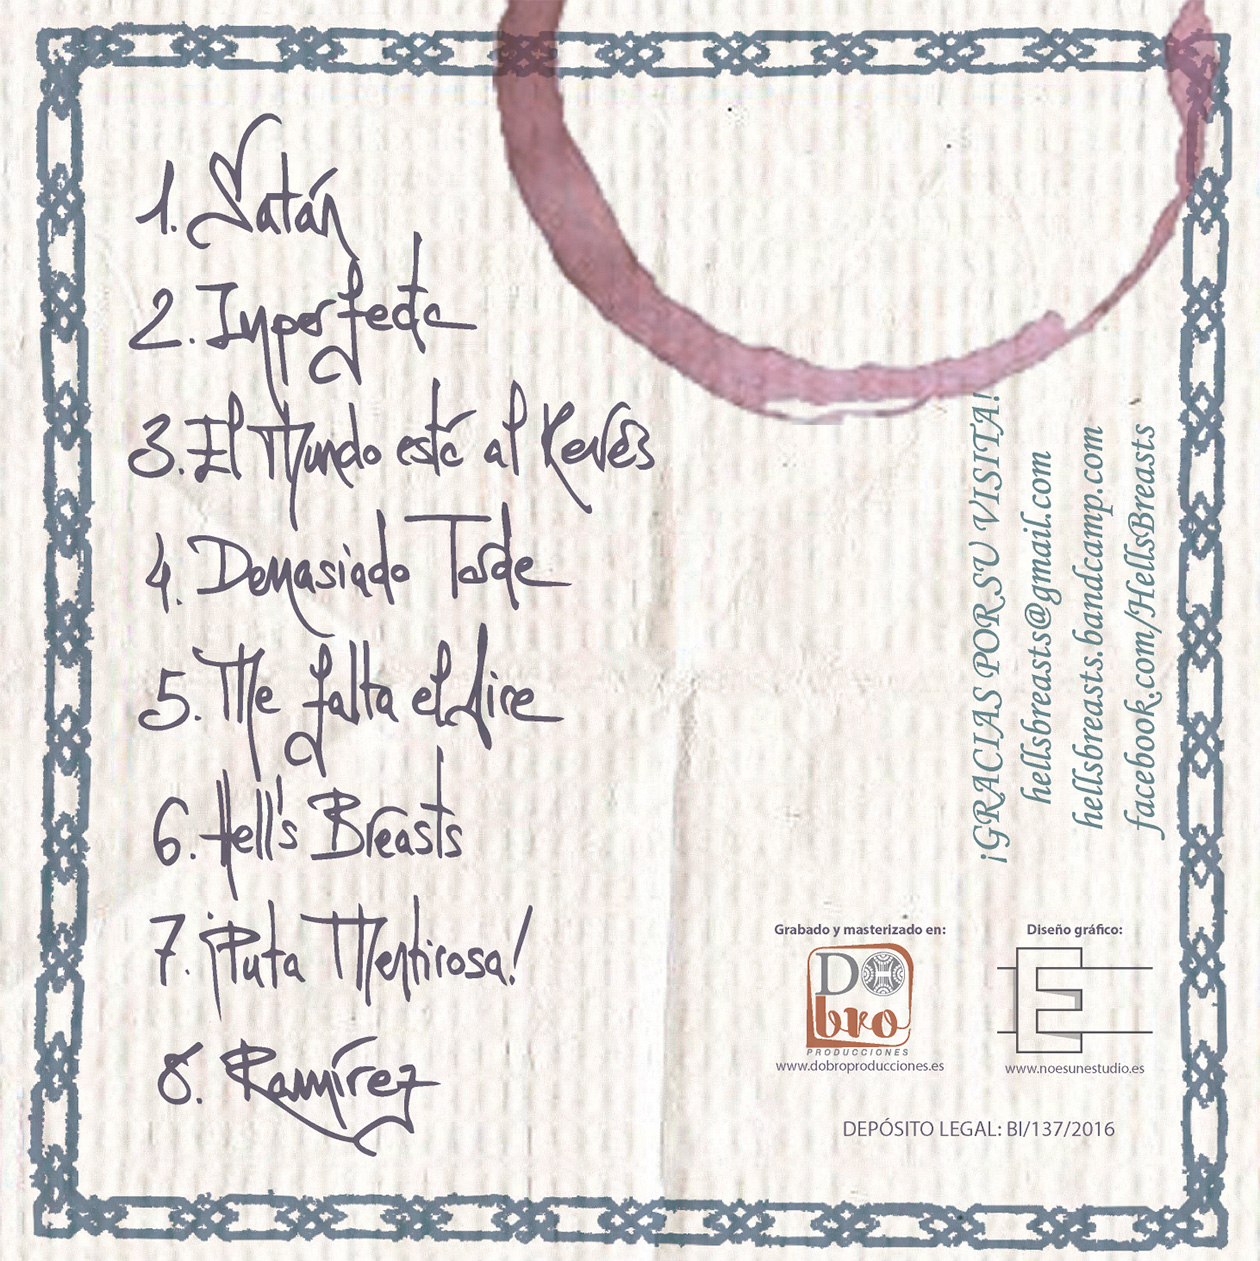 1. Satán
2. Imperfecta
3. El Mundo está al Revés
4. Demasiado Tarde
5. Me falta el Aire
6. Hell's Breasts
7. ¡Puta Mentirosa!
8. Ramírez
¡GRACIAS POR SU VISITA!
hellsbreasts@gmail.com
hellsbreasts.bandcamp.com
facebook.com/HellsBreasts
Grabado y masterizado en:
DObro
PRODUCCIONES
www.dobroproducciones.es
Diseño gráfico:
E
www.noesunestudio.es
DEPÓSITO LEGAL: BI/137/2016